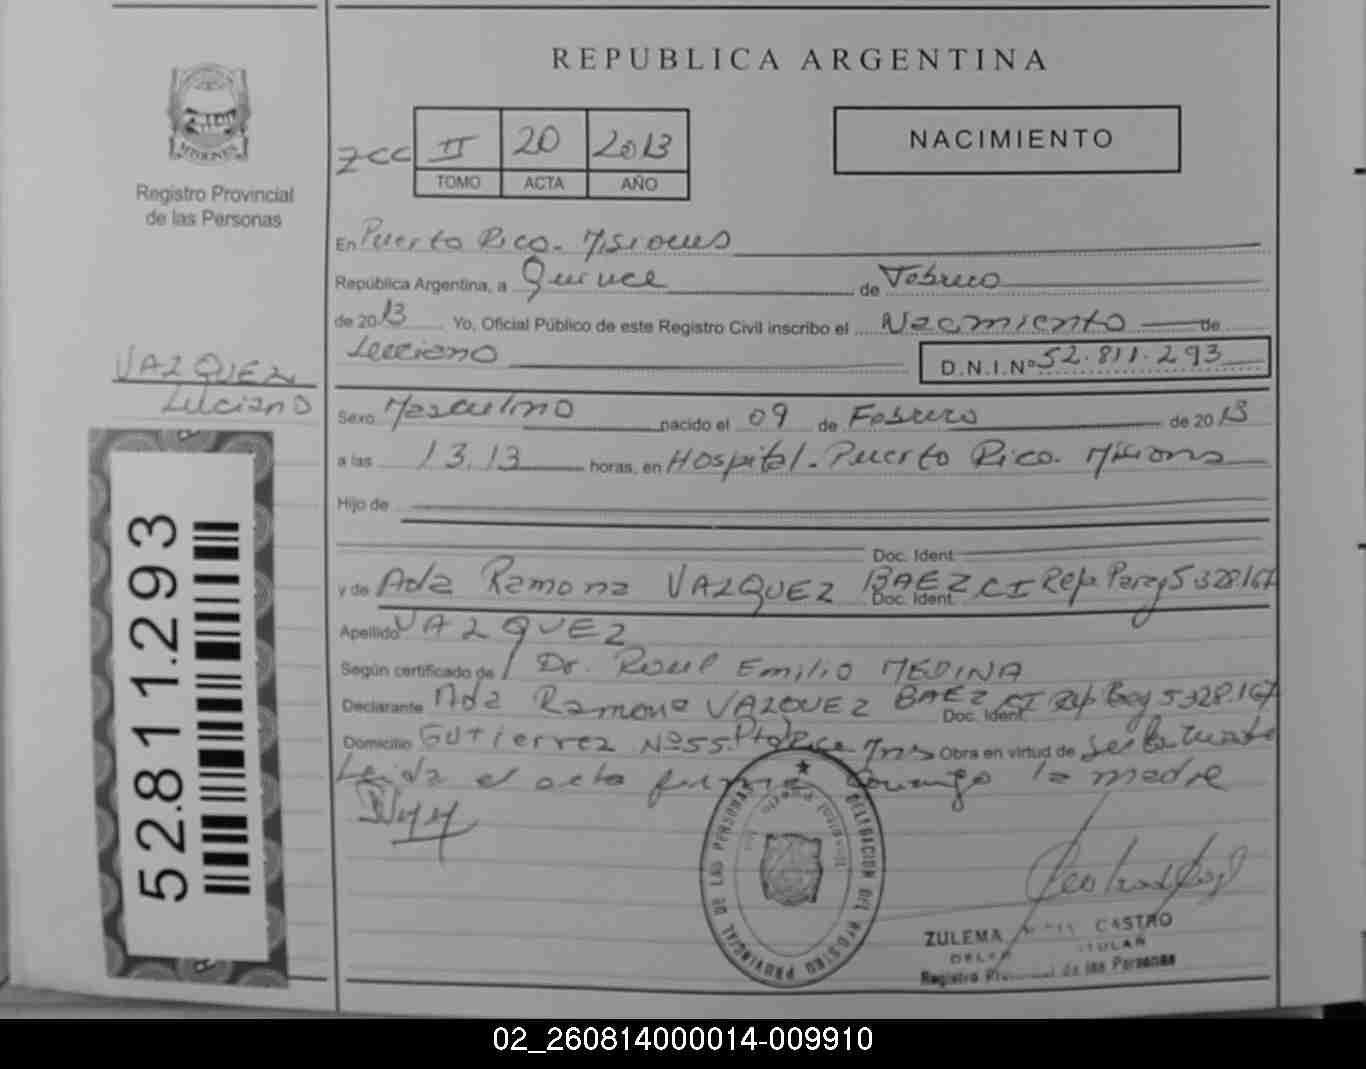 REPUBLICA ARGENTINA
MISIONES
Registro Provincial
de las Personas
zcc II 20 2013
TOMO ACTA AÑO
NACIMIENTO
En Puerto Rico. Misiones
República Argentina, a Quince de Febrero
de 2013 Yo, Oficial Público de este Registro Civil inscribo el Nacimiento de
Luciano D.N.I.Nº 52.811.293
VAZQUEZ
Luciano
52.811.293
Sexo Masculino nacido el 09 de Febrero de 2013
a las 13.13 horas, en Hospital. Puerto Rico. Misiones
Hijo de
Doc. Ident.
y de Ada Ramona VAZQUEZ BAEZ Doc. Ident. CI Rep. Paray 5328167
Apellido VAZQUEZ
Según certificado de Dr. Raul Emilio MEDINA
Declarante Ada Ramona VAZQUEZ BAEZ Doc. Ident. CI Rep. Pgy 5328.167
Domicilio Gutierrez Nº 55. Pto Rico Mns Obra en virtud de ser la madre
Leida el acta firma conmigo la madre
DELEGACION DEL REGISTRO PROVINCIAL DE LAS PERSONAS
ZULEMA CASTRO
TITULAR
Registro de las Personas
02_260814000014-009910